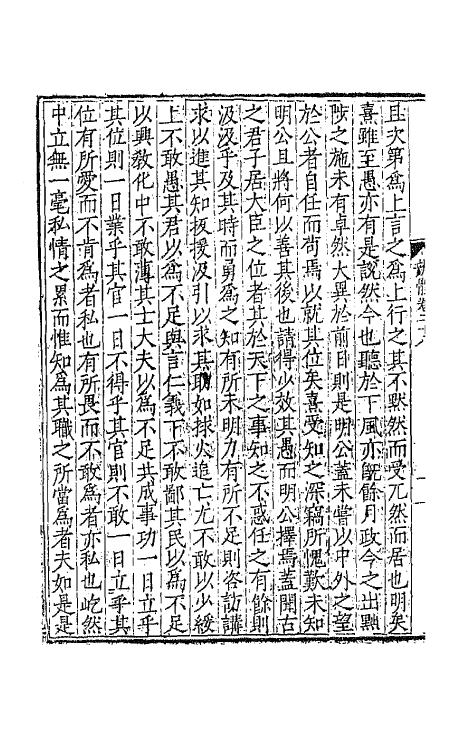 且次第為上言之為上行之其不默然而受兀然而居也明矣
熹雖至愚亦有是說然今也聽於下風亦旣餘月政令之出黜
陟之施未有卓然大異於前日則是明公蓋未嘗以中外之望
於公者自任而苟焉以就其位矣熹受知之深竊所愧歎未知
明公且將何以善其後也請得少效其愚而明公擇焉蓋聞古
之君子居大臣之位者其於天下之事知之不惑任之有餘則
汲汲乎及其時而勇為之知有所未明力有所不足則咨訪講
求以進其知扳援汲引以求其助如捄火追亡尤不敢以少緩
上不敢愚其君以為不足與言仁義下不敢鄙其民以為不足
以興敎化中不敢薄其士大夫以為不足共成事功一日立乎
其位則一日業乎其官一日不得乎其官則不敢一日立乎其
位有所愛而不肯為者私也有所畏而不敢為者亦私也屹然
中立無一毫私情之累而惟知為其職之所當為者夫如是是